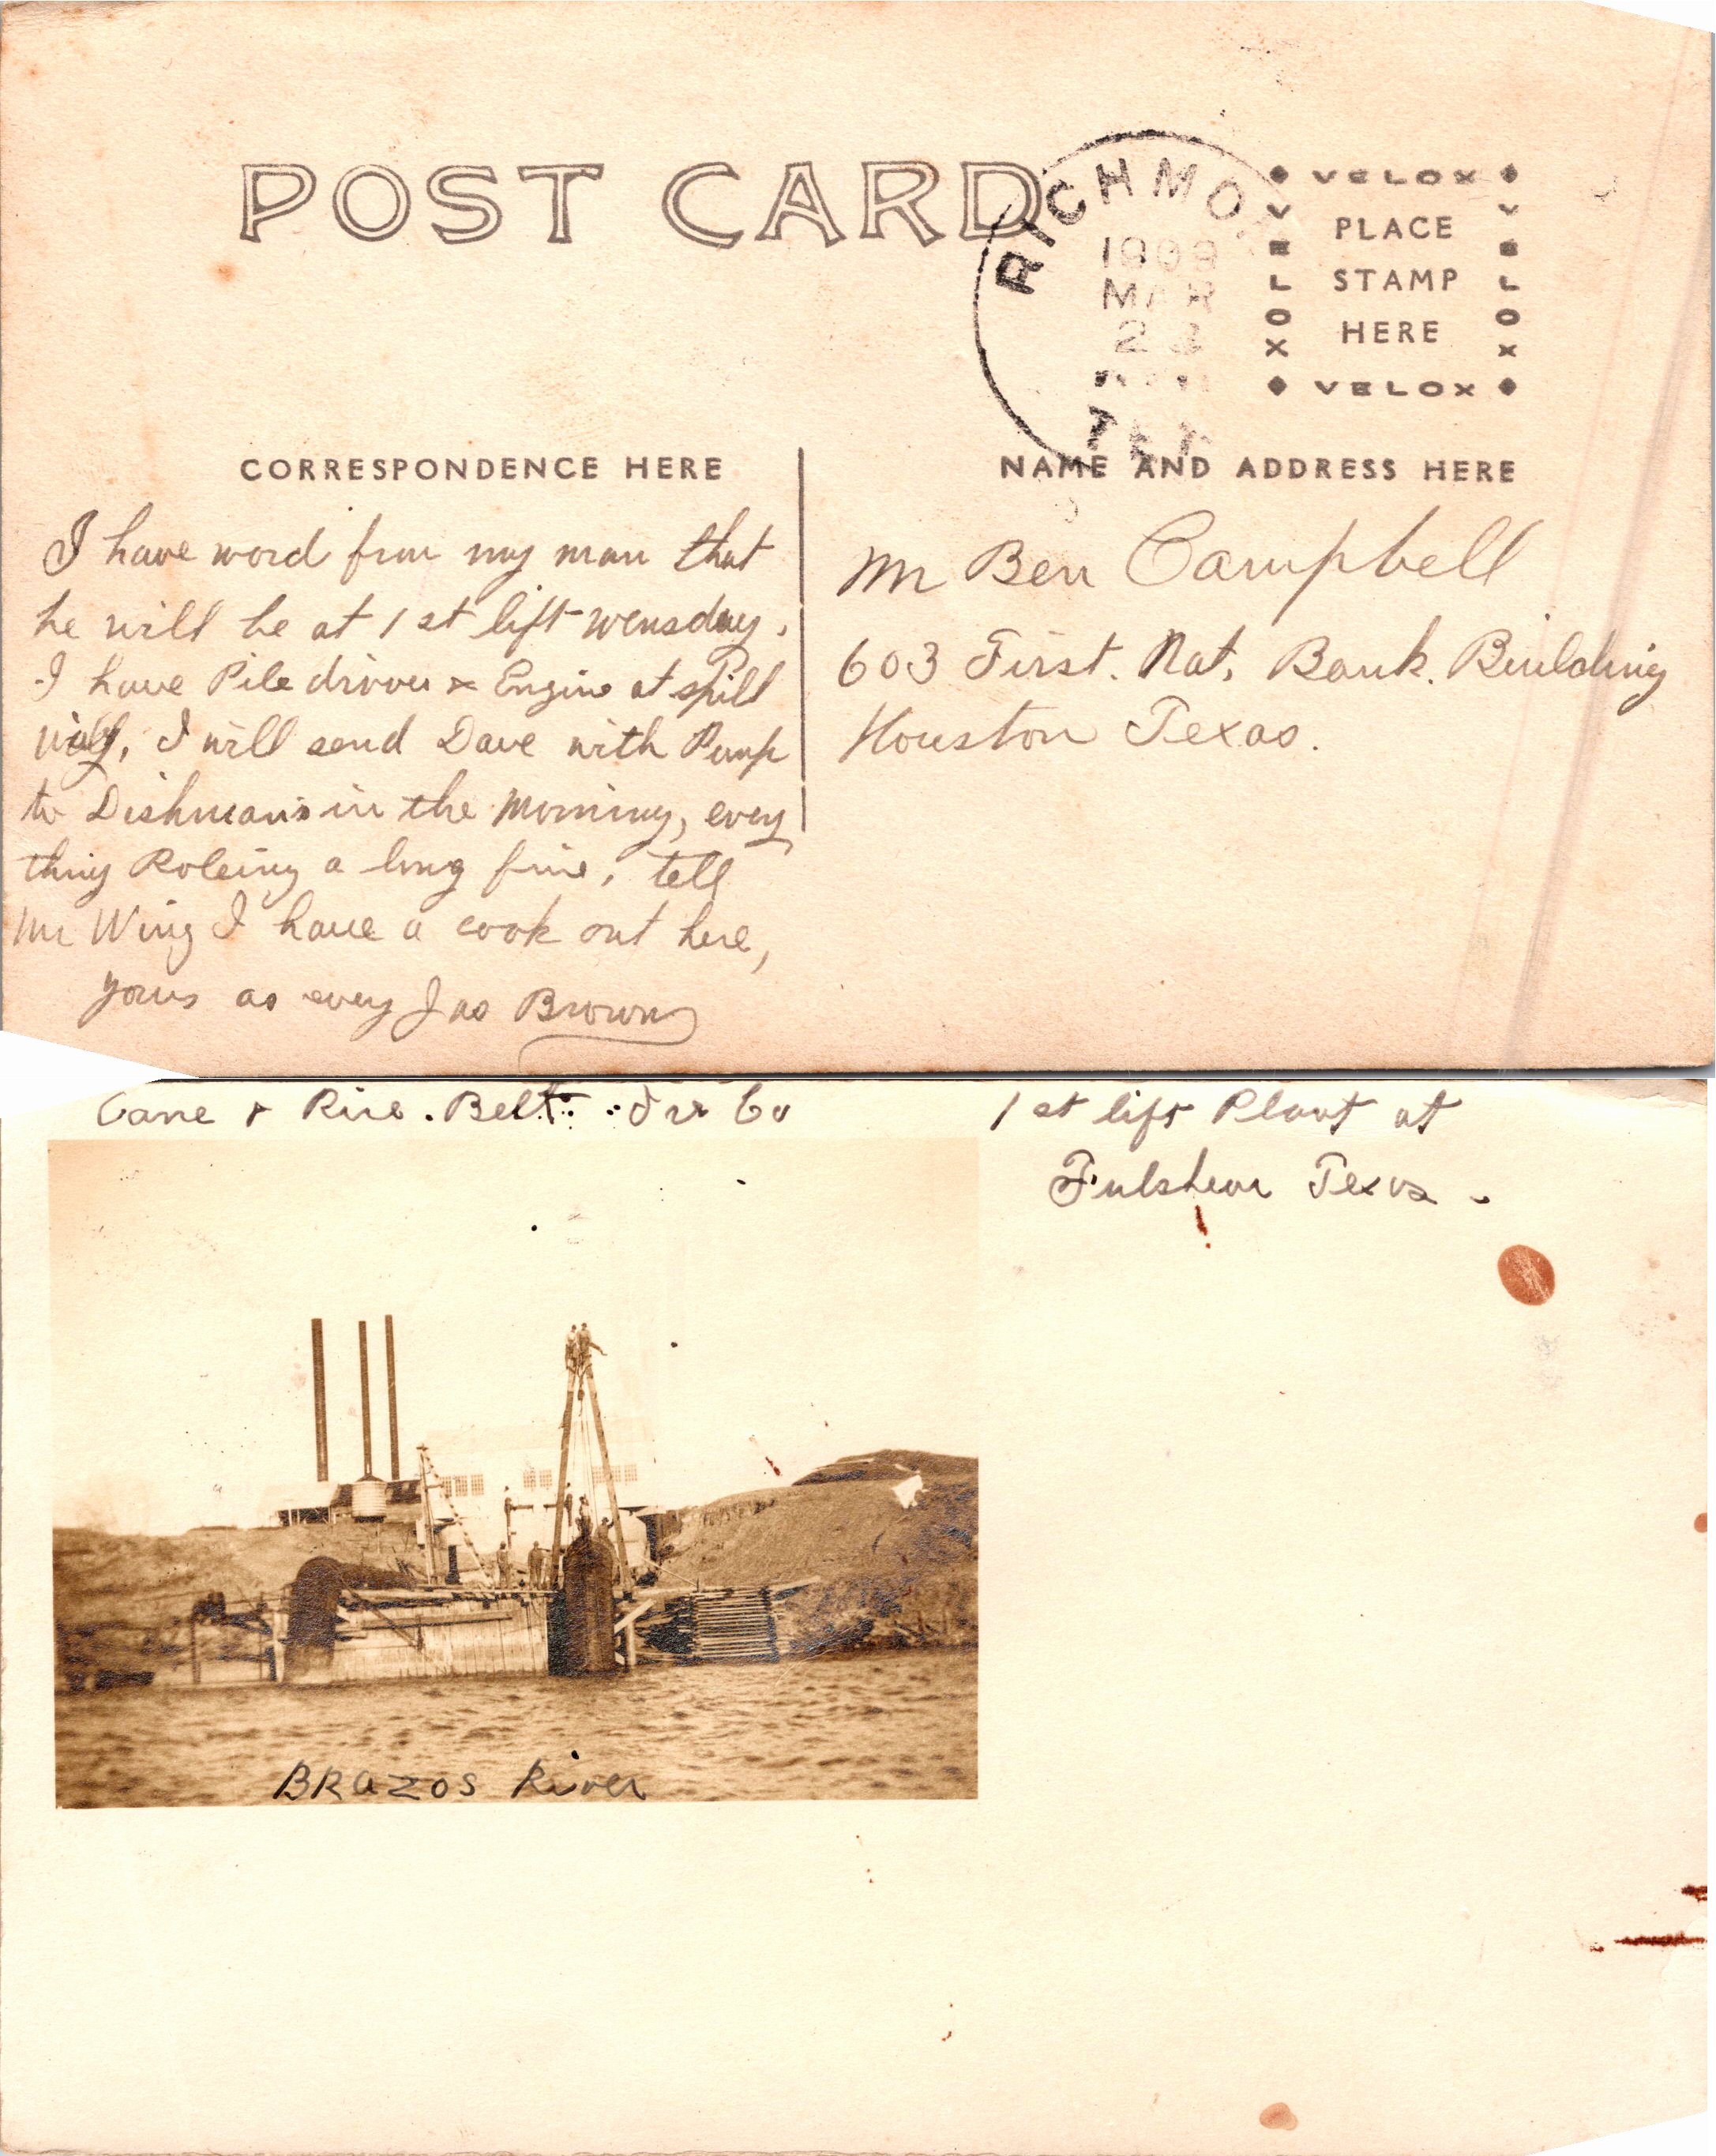 POST CARD
RICHMON
1909
MAR
23
TEX
VELOX
VELOX
PLACE
STAMP
HERE
VELOX
VELOX
CORRESPONDENCE HERE
NAME AND ADDRESS HERE
I have word from my man that
he will be at 1st lift wensday.
I have Pile drover & Engine at spill
way, I will send Dave with Pump
to Dishman's in the Morning, every
thing Roleing a long fine, tell
Mr Wing I have a cook out here,
yours as every Jas Brown
Mr Ben Campbell
603 First. Nat. Bank. Building
Houston Texas.
Cane & Rice. Belt. Irr Co
1st lift Plant at
Fulshear Texas.
BRAZOS River